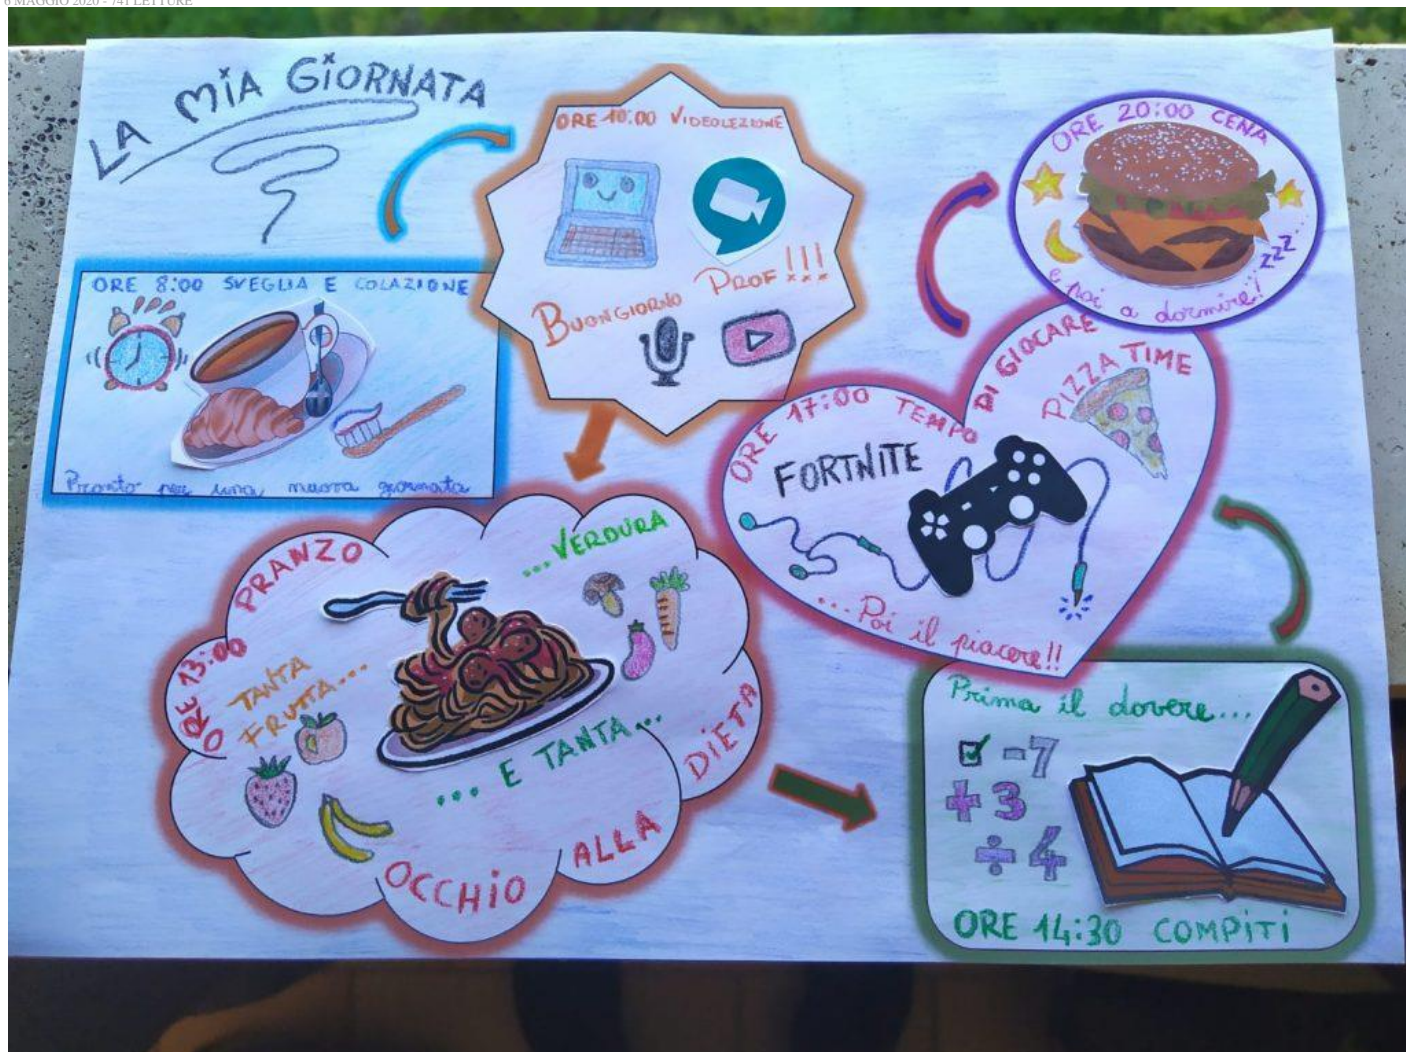 6 MAGGIO 2020 - 741 LETTURE
LA MIA GIORNATA
ORE 8:00 SVEGLIA E COLAZIONE
Pronto per una nuova giornata
ORE 10:00 VIDEOLEZIONE
BUONGIORNO PROF!!!
ORE 13:00 PRANZO
TANTA
FRUTTA...
... E TANTA...
...VERDURA
OCCHIO ALLA DIETA
Prima il dovere...
-7
+3
÷4
ORE 14:30 COMPITI
ORE 17:00 TEMPO DI GIOCARE
FORTNITE
PIZZA TIME
...Poi il piacere!!
ORE 20:00 CENA
zzz
e poi a dormire!